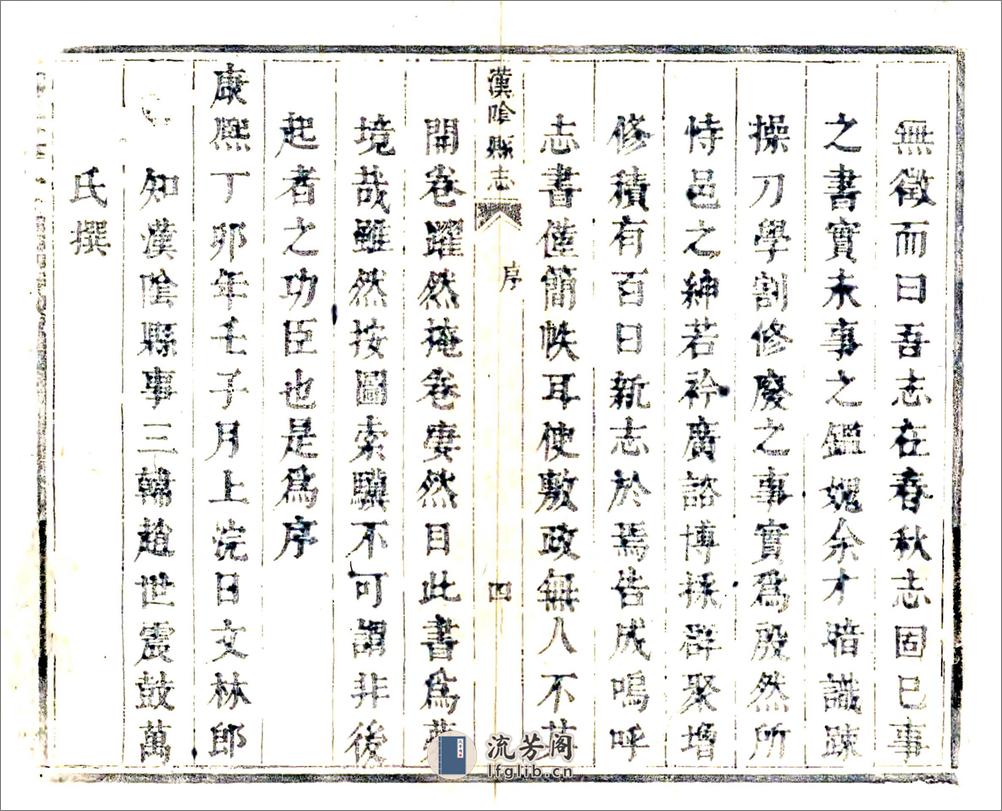 無徵而曰吾志在春秋志固已事
之書實未事之鑑媿余才暗識疎
操刀學割修廢之事實為殷然所
恃邑之紳若衿廣諮博採群聚增
修積有百日新志於焉告成嗚呼
志書僅簡帙耳使敷政無人不
漢陰縣志
序
四
開卷躍然掩卷淒然目此書為
境哉雖然按圖索驥不可謂非後
起者之功臣也是為序
康熙丁卯年壬子月上浣日文林郎
知漢陰縣事三韓趙世震鼓萬
氏撰
流芳阁
lfglib.cn